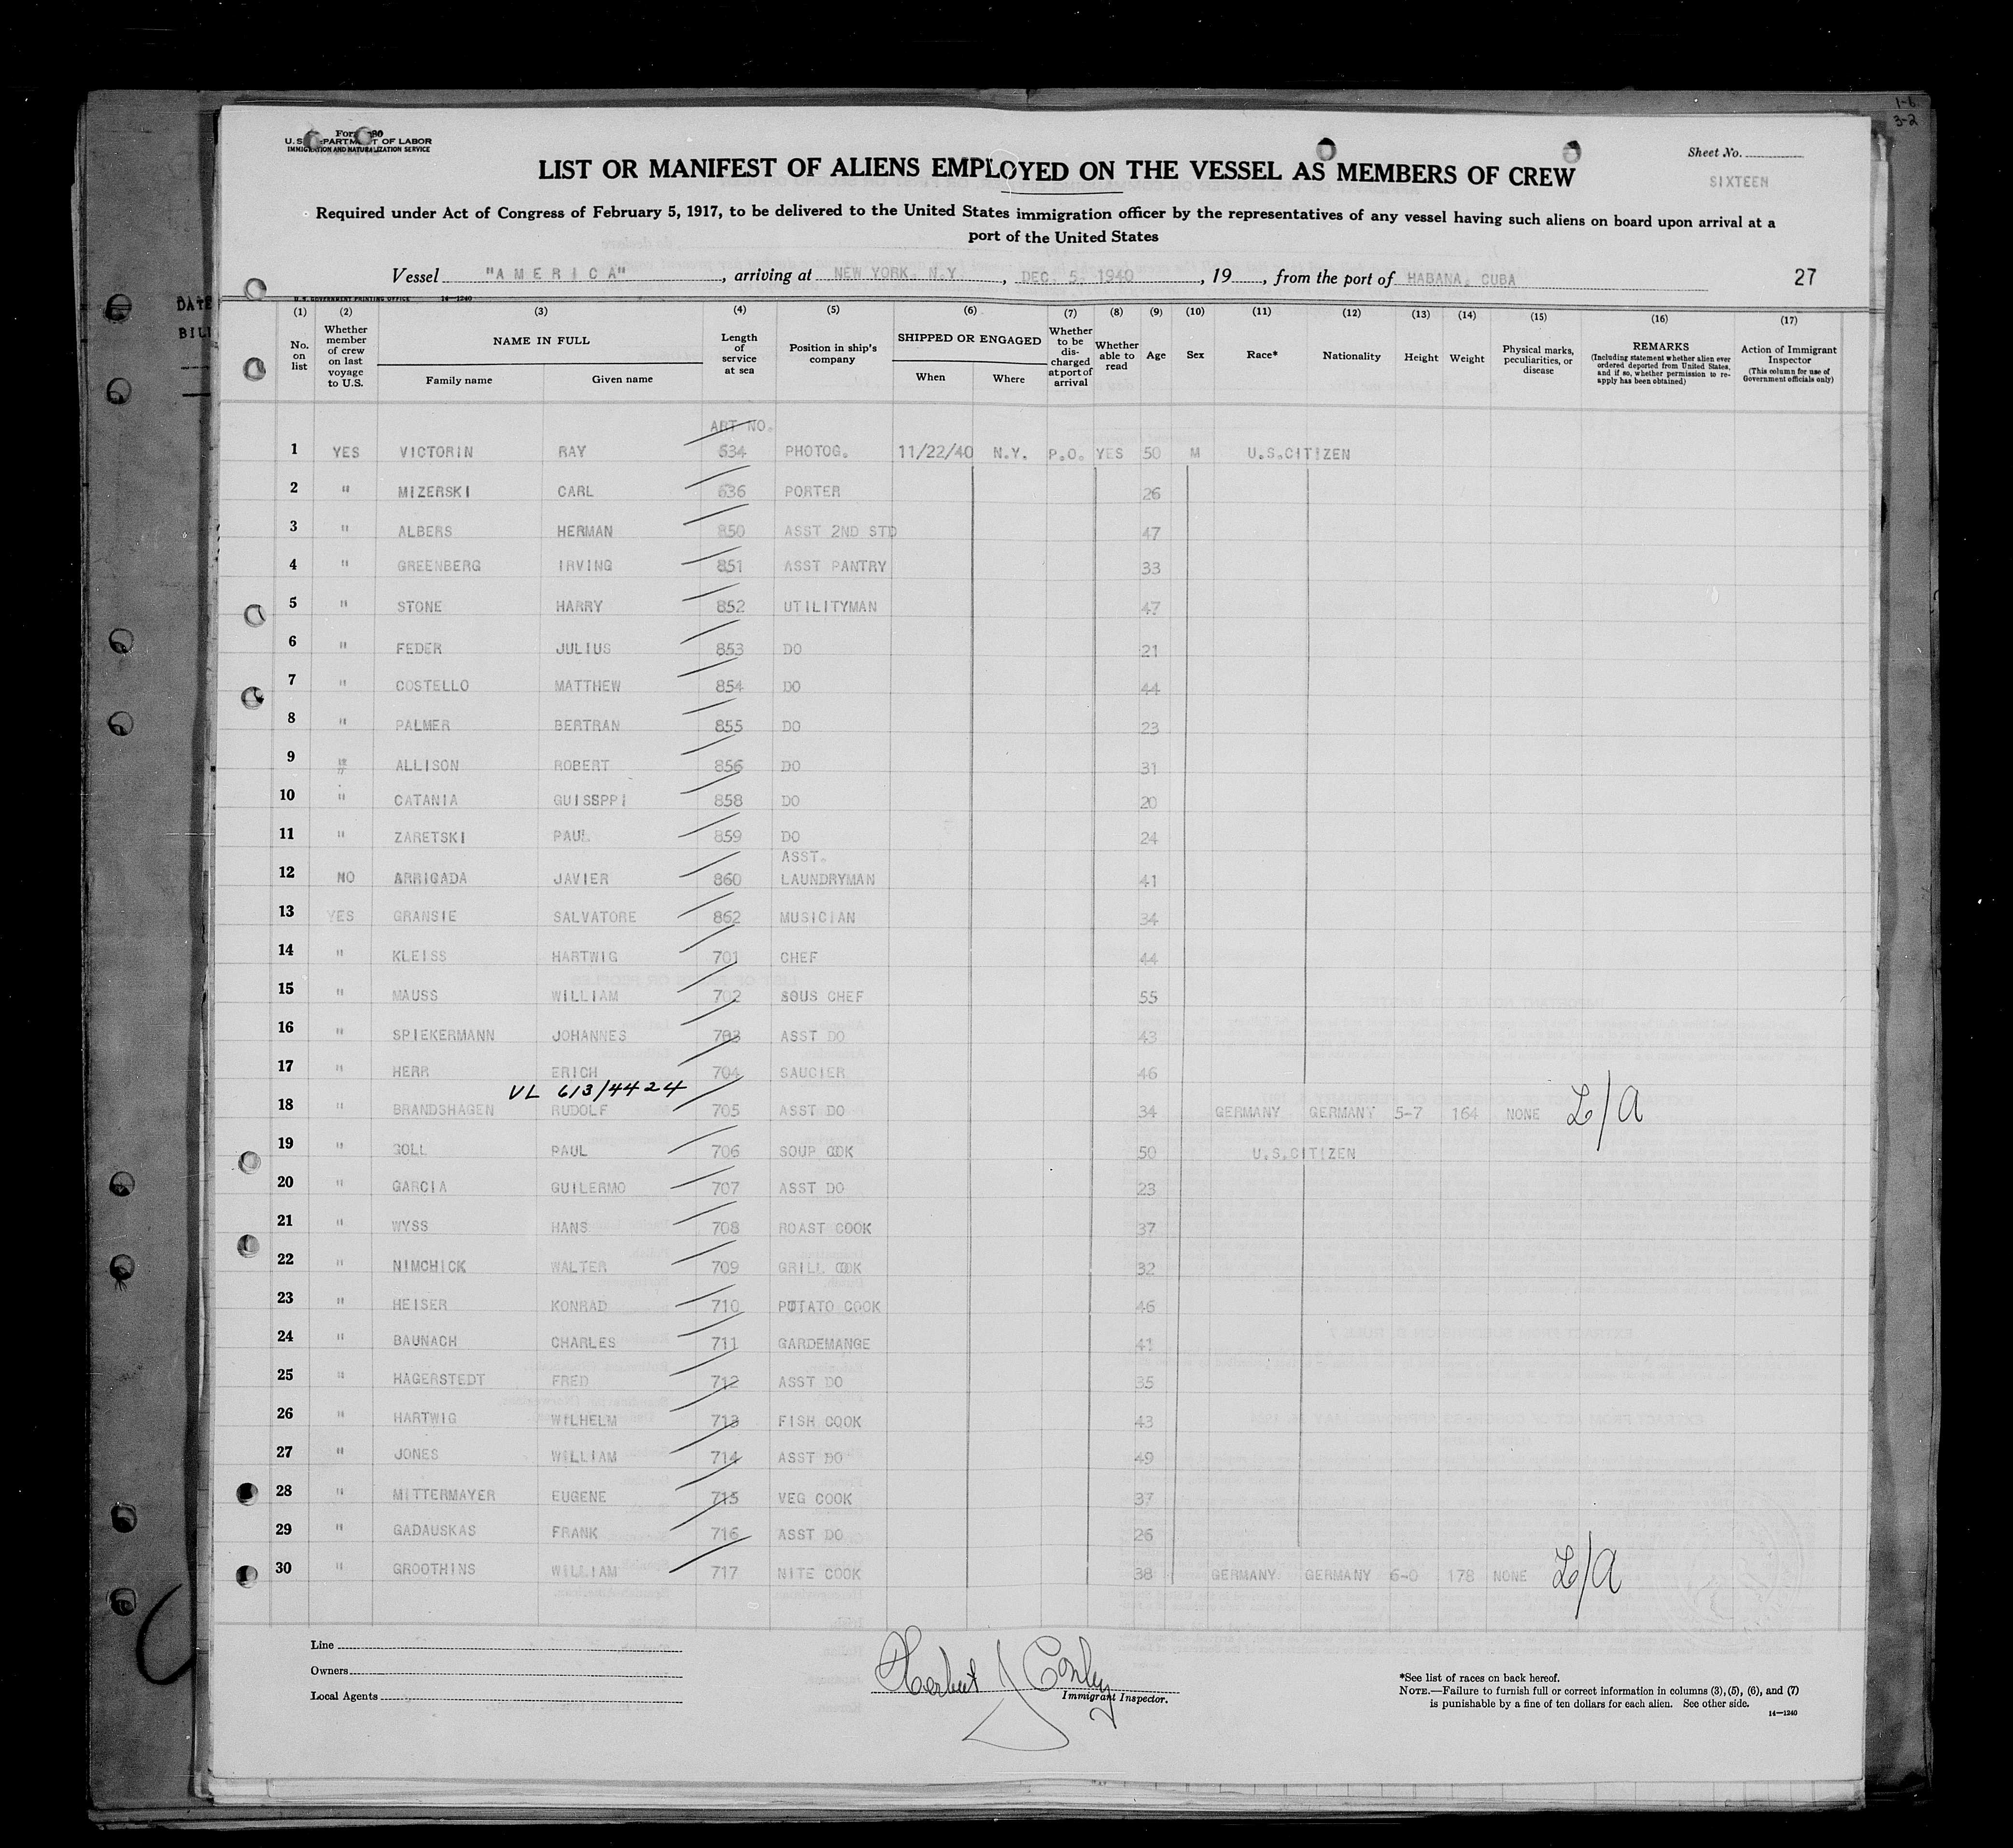 1-6
3-2
DATE
BILL
U.S. DEPARTMENT OF LABOR
IMMIGRATION AND NATURALIZATION SERVICE
Sheet No.
SIXTEEN
LIST OR MANIFEST OF ALIENS EMPLOYED ON THE VESSEL AS MEMBERS OF CREW
Required under Act of Congress of February 5, 1917, to be delivered to the United States immigration officer by the representatives of any vessel having such aliens on board upon arrival at a
port of the United States
Vessel "AMERICA", arriving at NEW YORK. N.Y., DEC. 5. 1940, 19, from the port of HABANA. CUBA 27
U. S. GOVERNMENT PRINTING OFFICE 14—1240
(1) (2) (3) (4) (5) (6) (7) (8) (9) (10) (11) (12) (13) (14) (15) (16) (17)
No. on list Whether member of crew on last voyage to U.S. NAME IN FULL Family name Given name Length of service at sea Position in ship's company SHIPPED OR ENGAGED When Where Whether to be discharged at port of arrival Whether able to read Age Sex Race* Nationality Height Weight Physical marks, peculiarities, or disease REMARKS (Including statement whether alien ever ordered deported from United States, and if so, whether permission to reapply has been obtained) Action of Immigrant Inspector (This column for use of Government officials only)
ART NO.
1 YES VICTORIN RAY 634 PHOTOG. 11/22/40 N.Y. P.O. YES 50 M U.S.CITIZEN
2 " MIZERSKI CARL 636 PORTER 26
3 " ALBERS HERMAN 850 ASST 2ND STD 47
4 " GREENBERG IRVING 851 ASST PANTRY 33
5 " STONE HARRY 852 UTILITYMAN 47
6 " FEDER JULIUS 853 DO 21
7 " COSTELLO MATTHEW 854 DO 44
8 " PALMER BERTRAN 855 DO 23
9 " ALLISON ROBERT 856 DO 31
10 " CATANIA GUISSPPI 858 DO 20
11 " ZARETSKI PAUL 859 DO 24
ASST.
12 NO ARRIGADA JAVIER 860 LAUNDRYMAN 41
13 YES GRANSIE SALVATORE 862 MUSICIAN 34
14 " KLEISS HARTWIG 701 CHEF 44
15 " MAUSS WILLIAM 702 SOUS CHEF 55
16 " SPIEKERMANN JOHANNES 703 ASST DO 43
17 " HERR ERICH 704 SAUCIER 46
VL 613/4424
18 " BRANDSHAGEN RUDOLF 705 ASST DO 34 GERMANY GERMANY 5-7 164 NONE L/A
19 " SOLL PAUL 706 SOUP COOK 50 U.S.CITIZEN
20 " GARCIA GUILERMO 707 ASST DO 23
21 " WYSS HANS 708 ROAST COOK 37
22 " NIMCHICK WALTER 709 GRILL COOK 32
23 " HEISER KONRAD 710 POTATO COOK 46
24 " BAUNACH CHARLES 711 GARDEMANGE 41
25 " HAGERSTEDT FRED 712 ASST DO 35
26 " HARTWIG WILHELM 713 FISH COOK 43
27 " JONES WILLIAM 714 ASST DO 49
28 " MITTERMAYER EUGENE 715 VEG COOK 37
29 " GADAUSKAS FRANK 716 ASST DO 26
30 " GROOTHINS WILLIAM 717 NITE COOK 38 GERMANY GERMANY 6-0 178 NONE L/A
Line
Owners
Local Agents
Herbert J Conley
Immigrant Inspector.
*See list of races on back hereof.
NOTE.—Failure to furnish full or correct information in columns (3), (5), (6), and (7)
is punishable by a fine of ten dollars for each alien. See other side.
14—1240